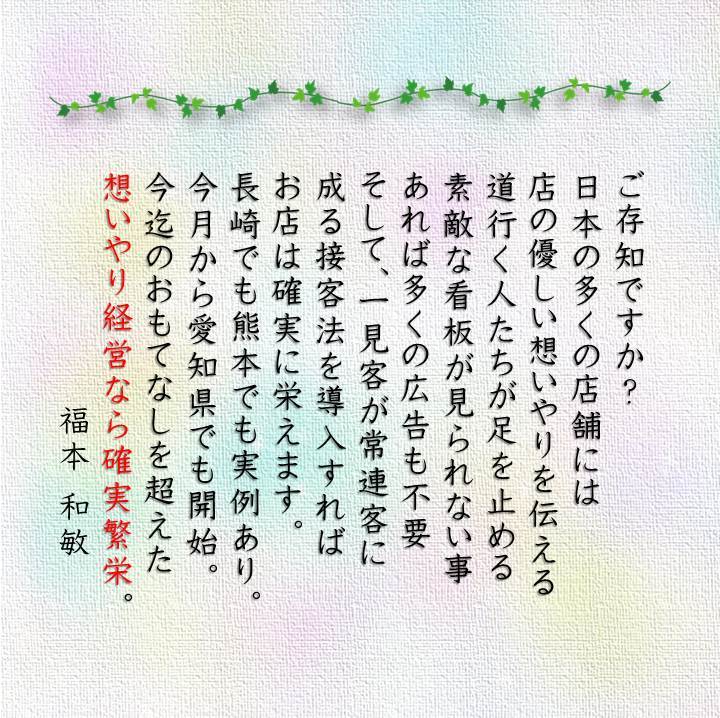 ご存知ですか?
日本の多くの店舗には
店の優しい想いやりを伝える
道行く人たちが足を止める
素敵な看板が見られない事
あれば多くの広告も不要
そして、一見客が常連客に
成る接客法を導入すれば
お店は確実に栄えます。
長崎でも熊本でも実例あり。
今月から愛知県でも開始。
今迄のおもてなしを超えた
想いやり経営なら確実繁栄。
福本 和敏